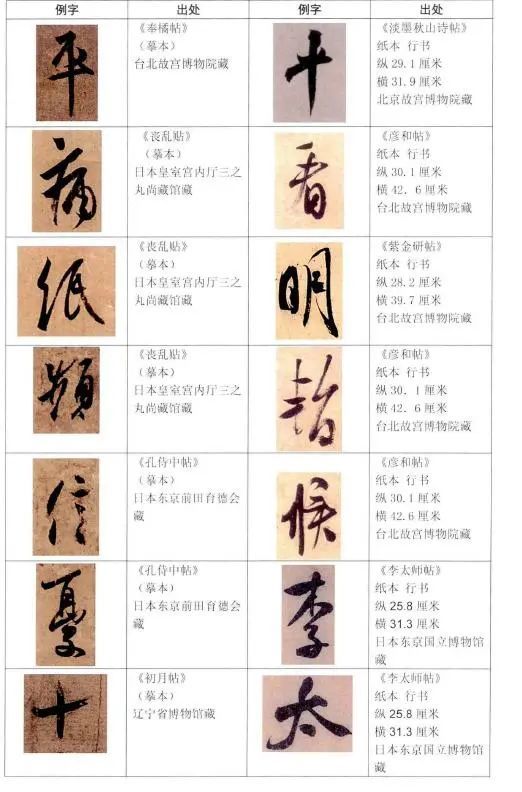 例字 出处 例字 出处
平
《奉橘帖》
(摹本)
台北故宫博物院藏
十
《淡墨秋山诗帖》
纸本 行书
纵29.1厘米
横31.9厘米
北京故宫博物院藏
病
《丧乱贴》
(摹本)
日本皇室宫内厅三之
丸尚藏馆藏
看
《彦和帖》
纸本 行书
纵30.1厘米
横42.6厘米
台北故宫博物院藏
纸
《丧乱贴》
(摹本)
日本皇室宫内厅三之
丸尚藏馆藏
明
《紫金研帖》
纸本 行书
纵28.2厘米
横39.7厘米
台北故宫博物院藏
《丧乱贴》
(摹本)
日本皇室宫内厅三之
丸尚藏馆藏
《彦和帖》
纸本 行书
纵30.1厘米
横42.6厘米
台北故宫博物院藏
信
《孔侍中帖》
(摹本)
日本东京前田育德会
藏
候
《彦和帖》
纸本 行书
纵30.1厘米
横42.6厘米
台北故宫博物院藏
《孔侍中帖》
(摹本)
日本东京前田育德会
藏
李
《李太师帖》
纸本 行书
纵25.8厘米
横31.3厘米
日本东京国立博物馆
藏
十
《初月帖》
(摹本)
辽宁省博物馆藏
太
《李太师帖》
纸本 行书
纵25.8厘米
横31.3厘米
日本东京国立博物馆
藏